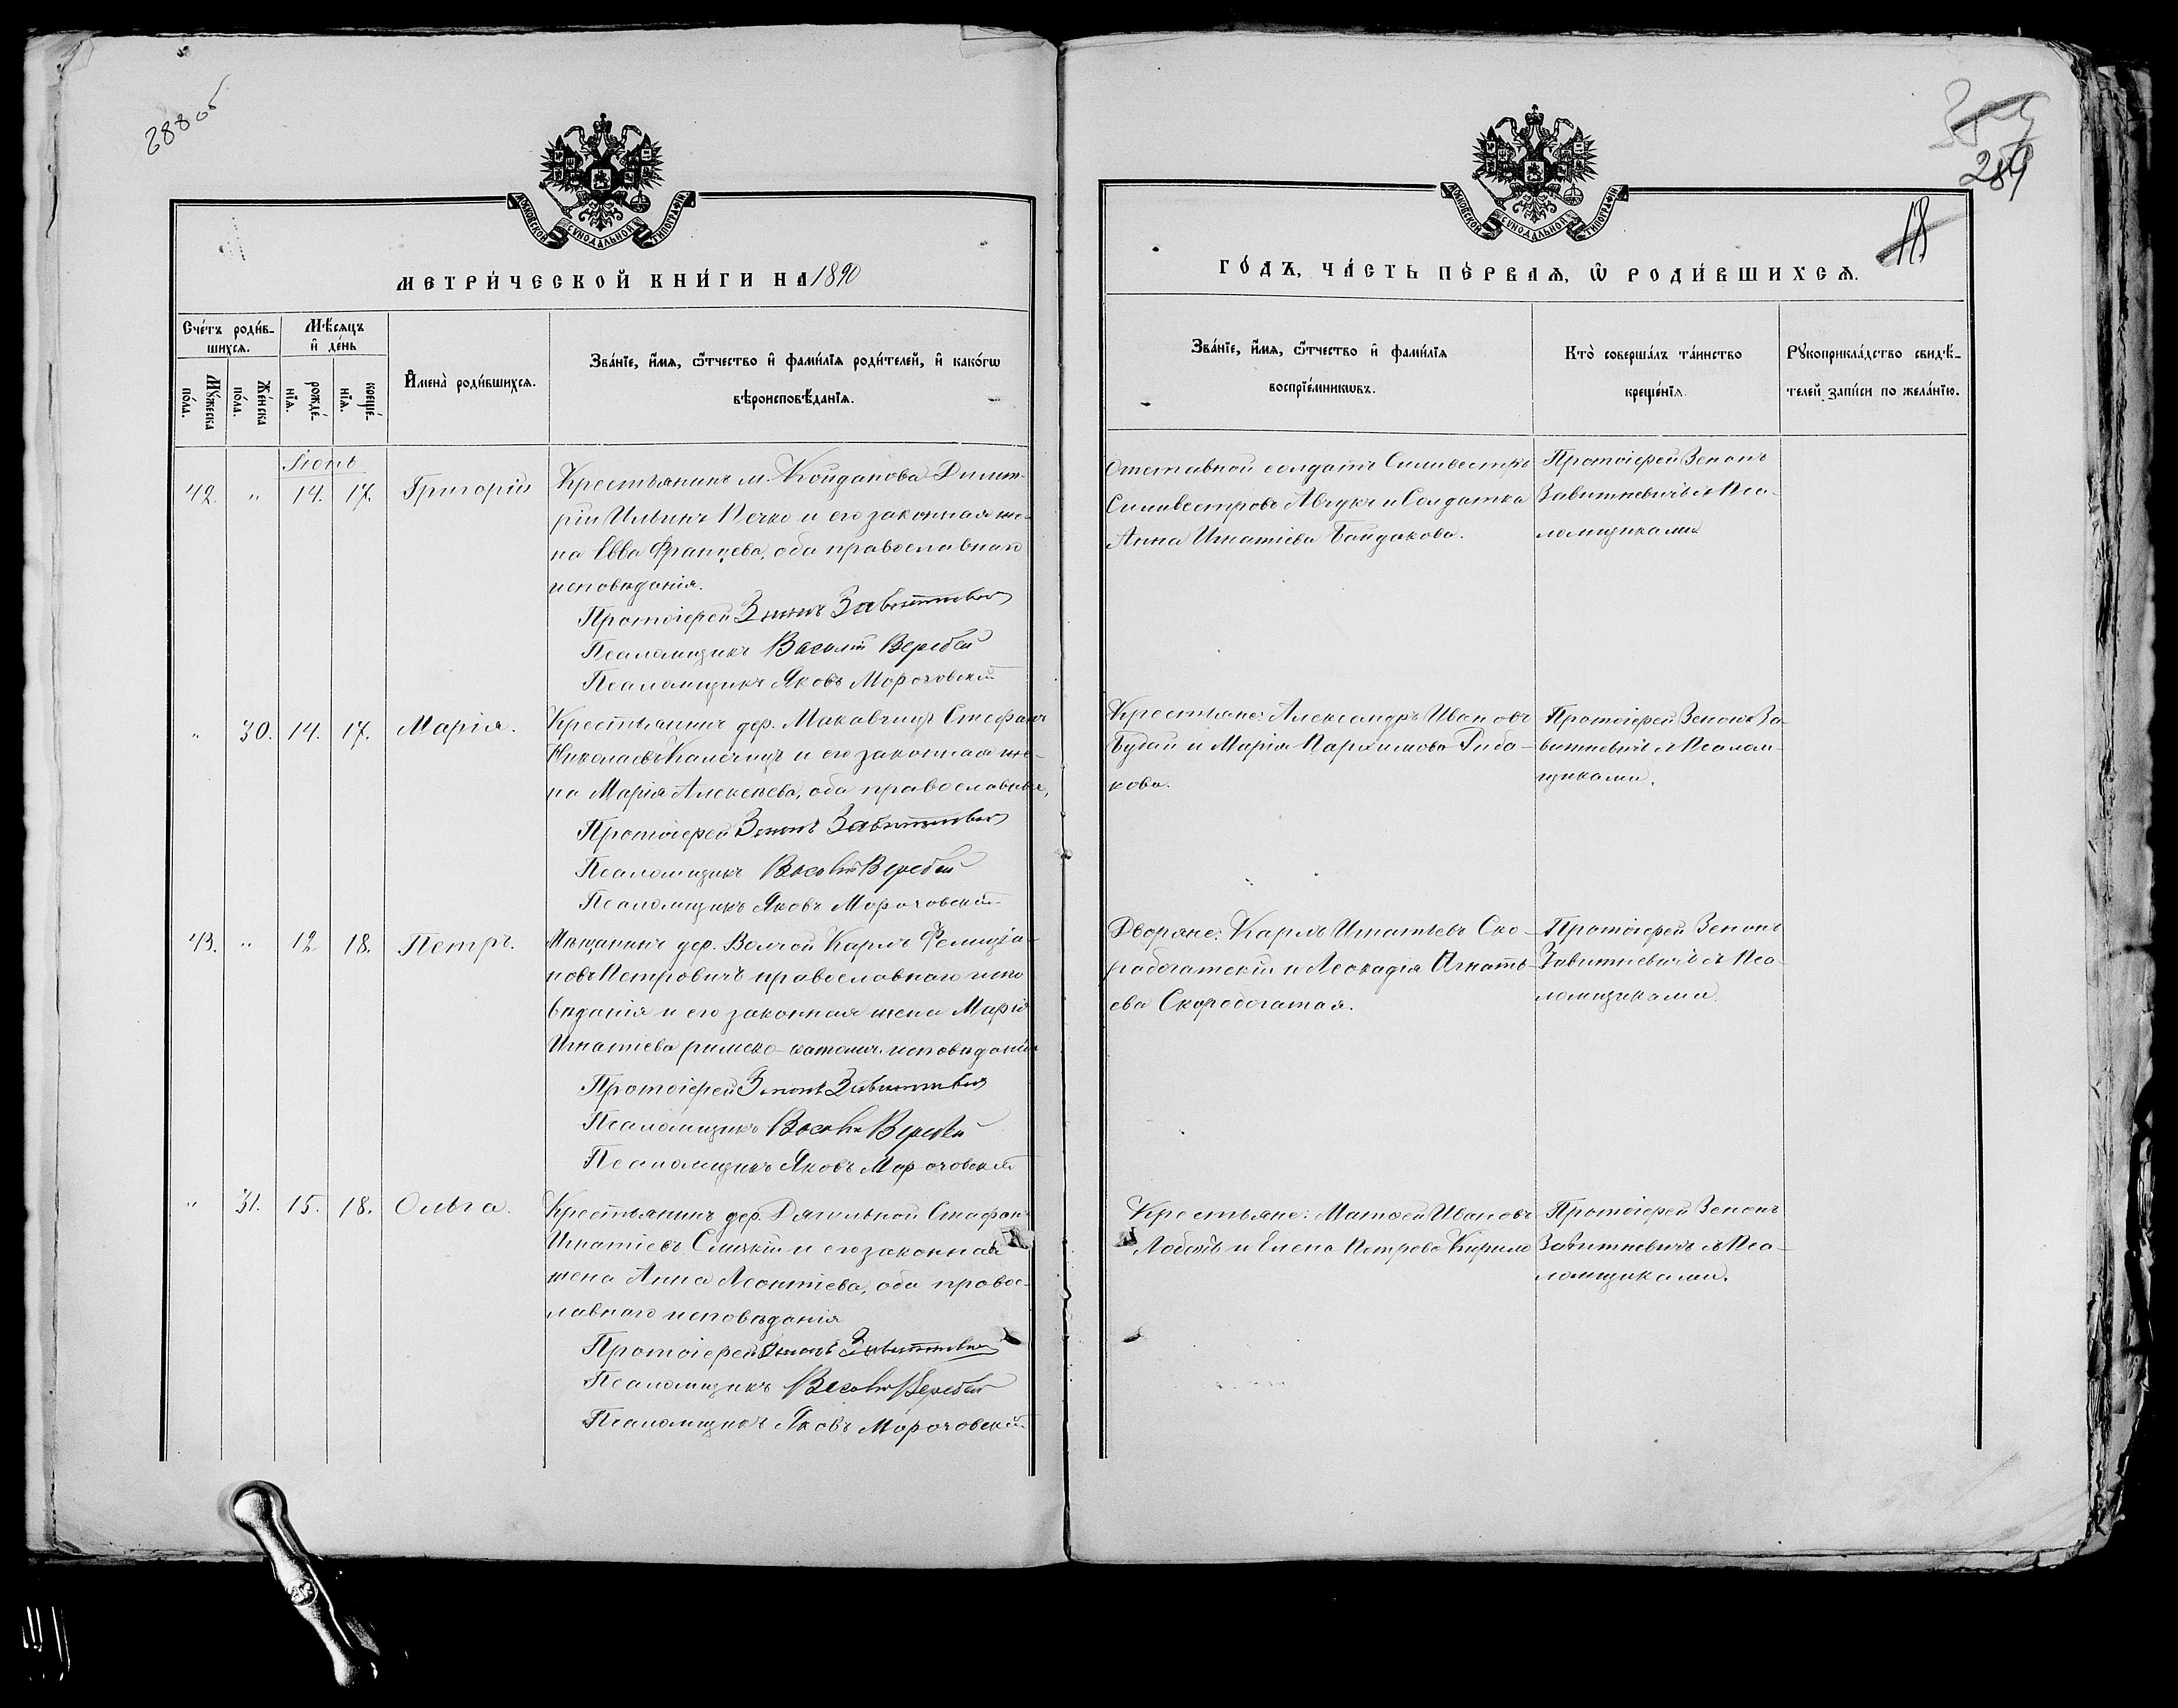 288 об
289
18
МОСКОВСКОЙ СѴНОДАЛЬНОЙ ТИПОГРАФІИ
МОСКОВСКОЙ СѴНОДАЛЬНОЙ ТИПОГРАФІИ
МЕТРИ́ЧЕСКОЙ КНИ́ГИ НА 1890
ГО́ДЪ, ЧА́СТЬ ПЕ́РВАѦ, Ѡ РОДИ́ВШИХСѦ.
Сче́тъ роди́в-
шихсѧ.
Мꙋ́жеска по́ла.
Же́нска по́ла.
Мѣ́сѧцъ
и҆ де́нь
рожде́-
нїѧ.
креще́-
нїѧ.
И҆мена̀ роди́вшихсѧ.
Зва́нїе, и҆́мѧ, ѻ҆́тчество и҆ фами́лїѧ роди́телей, и҆ како́гѡ
вѣроисповѣ́данїѧ.
Зва́нїе, и҆́мѧ, ѻ҆́тчество и҆ фами́лїѧ
воспрїе́мникѡвъ.
Кто̀ соверша́лъ та́инство
креще́нїѧ.
Рꙋкоприкла́дство свидѣ́-
телей за́писи по жела́нїю.
Іюнь
42. " 14. 17. Григорій
Крестьянинъ м. Койданова Димит-
рій Ильинъ Печко и его законная же-
на Евва Францева, оба православнаго
исповѣданія.
Протоіерей Зенонъ Завитневичъ
Псаломщикъ Василій Веребей
Псаломщикъ Яковъ Морочовскій
Отставной солдатъ Сильвестръ
Сильвестровъ Авчукъ и Солдатка
Анна Игнатіева Байдакова.
Протоіерей Зенонъ
Завитневичъ съ Пса-
ломщиками
" 30. 14. 17. Марія.
Крестьянинъ дер. Макавчицъ Стефанъ
Николаевъ и его законная же-
на Марія Алексѣева, оба православные,
Протоіерей Зенонъ Завитневичъ
Псаломщикъ Василій Веребей
Псаломщикъ Яковъ Морочовскій
Крестьяне: Александръ Ивановъ
Будай и Марія Пархимова Рыба-
кова.
Протоіерей Зенонъ За-
витневичъ съ Псалом-
щиками.
43. " 12 18. Петръ.
Мѣщанинъ дер. Волчой Карлъ Фелиціа-
новъ Петровичъ православнаго испо
вѣданія и его законная жена Марія
Игнатіева римско-католич. исповѣданія
Протоіерей Зенонъ Завитневичъ
Псаломщикъ Василій Веребей
Псаломщикъ Яковъ Морочовскій
Дворяне: Карлъ Игнатьевъ Ско-
робогатскій и Леокадія Игнать-
ева Скоробогатая.
Протоіерей Зенонъ
Завитневичъ съ Пса-
ломщиками.
" 31. 15. 18. Ольга.
Крестьянинъ дер. Дягильной Стефанъ
Игнатіевъ Слуцкій и его законная
жена Анна Леонтіева, оба правос-
лавнаго исповѣданія
Протоіерей Зенонъ Завитневичъ
Псаломщикъ Василій Веребей
Псаломщикъ Яковъ Морочовскій
Крестьяне: Матѳей Ивановъ
Лобачъ и Елена Петрова Кирило
Протоіерей Зенонъ
Завитневичъ съ Пса-
ломщиками.